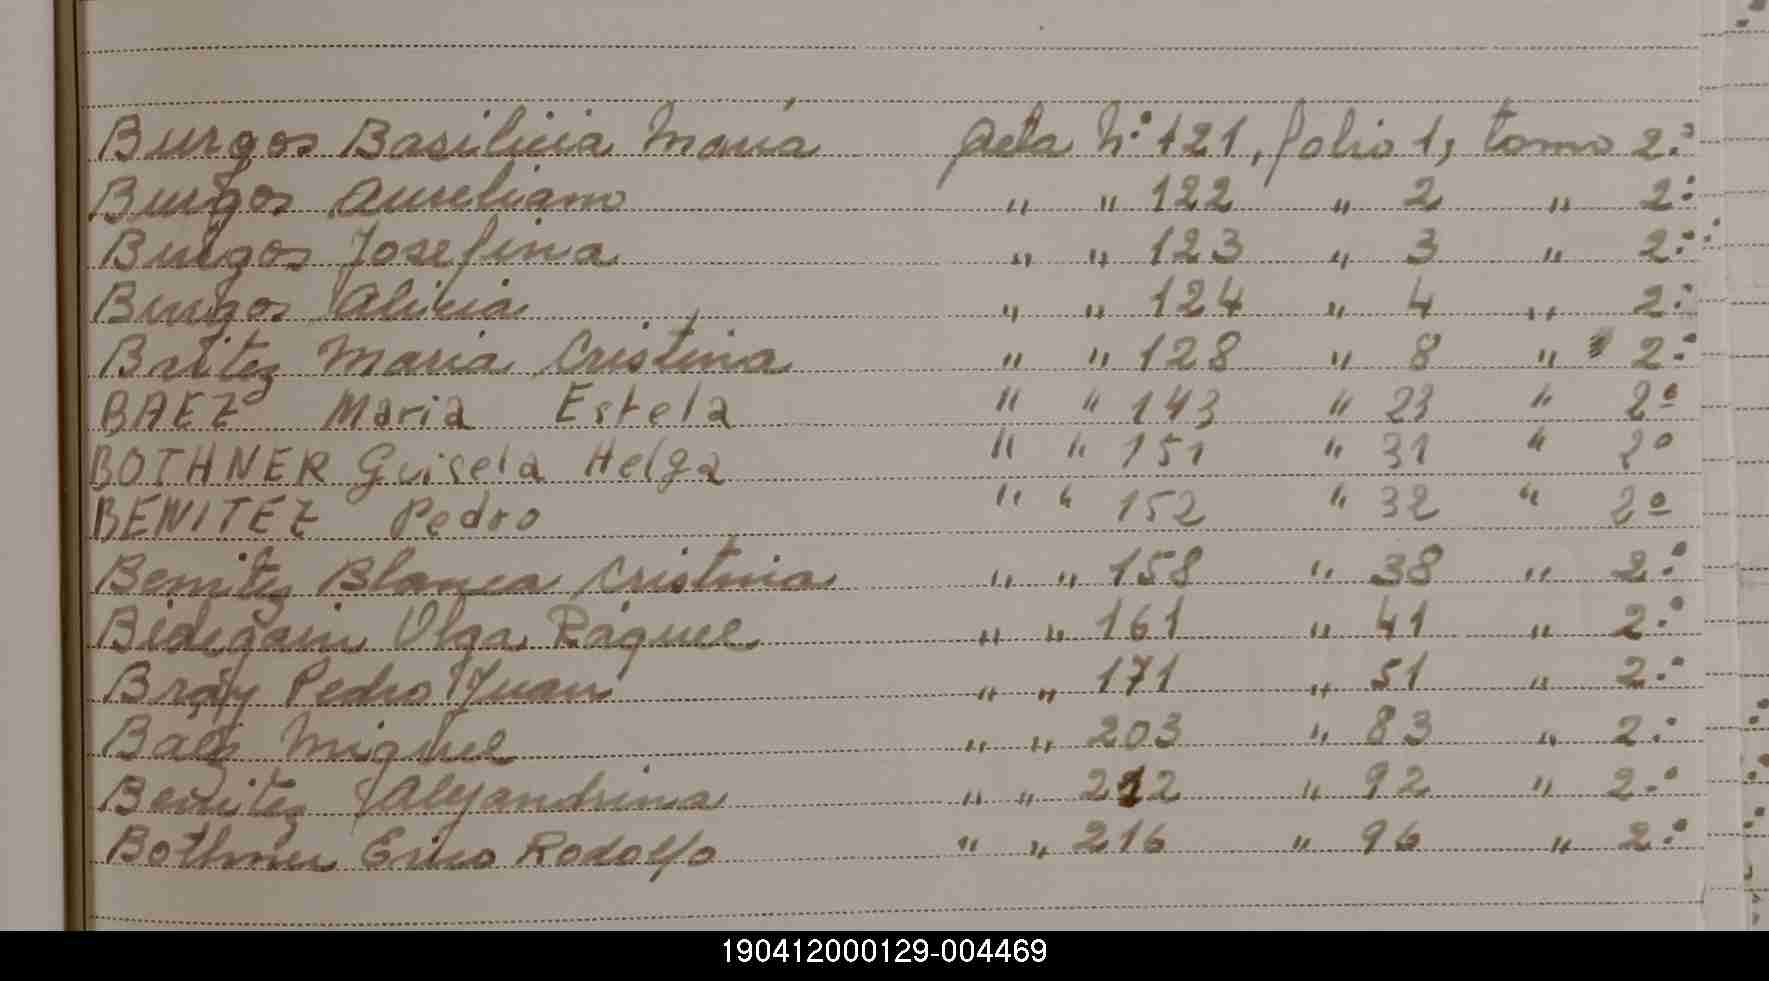 Burgos Basilicia María acta N.º 121, folio 1, tomo 2.º
Burgos Aureliano " " 122 " 2 " 2.º
Burgos Josefina " " 123 " 3 " 2.º
Burgos Alicia " " 124 " 4 " 2.º
Britez Maria Cristina " " 128 " 8 " 2.º
BAEZ Maria Estela " " 143 " 23 " 2º
BOTHNER Guisela Helga " " 151 " 31 " 2º
BENITEZ Pedro " " 152 " 32 " 2º
Benitez Blanca Cristina " " 158 " 38 " 2.º
Bidegain Olga Raquel " " 161 " 41 " 2.º
Bray Pedro Juan " " 171 " 51 " 2.º
Baez Miguel " " 203 " 83 " 2.º
Benitez Alejandrina " " 212 " 92 " 2.º
Bothner Erico Rodolfo " " 216 " 96 " 2.º
190412000129-004469